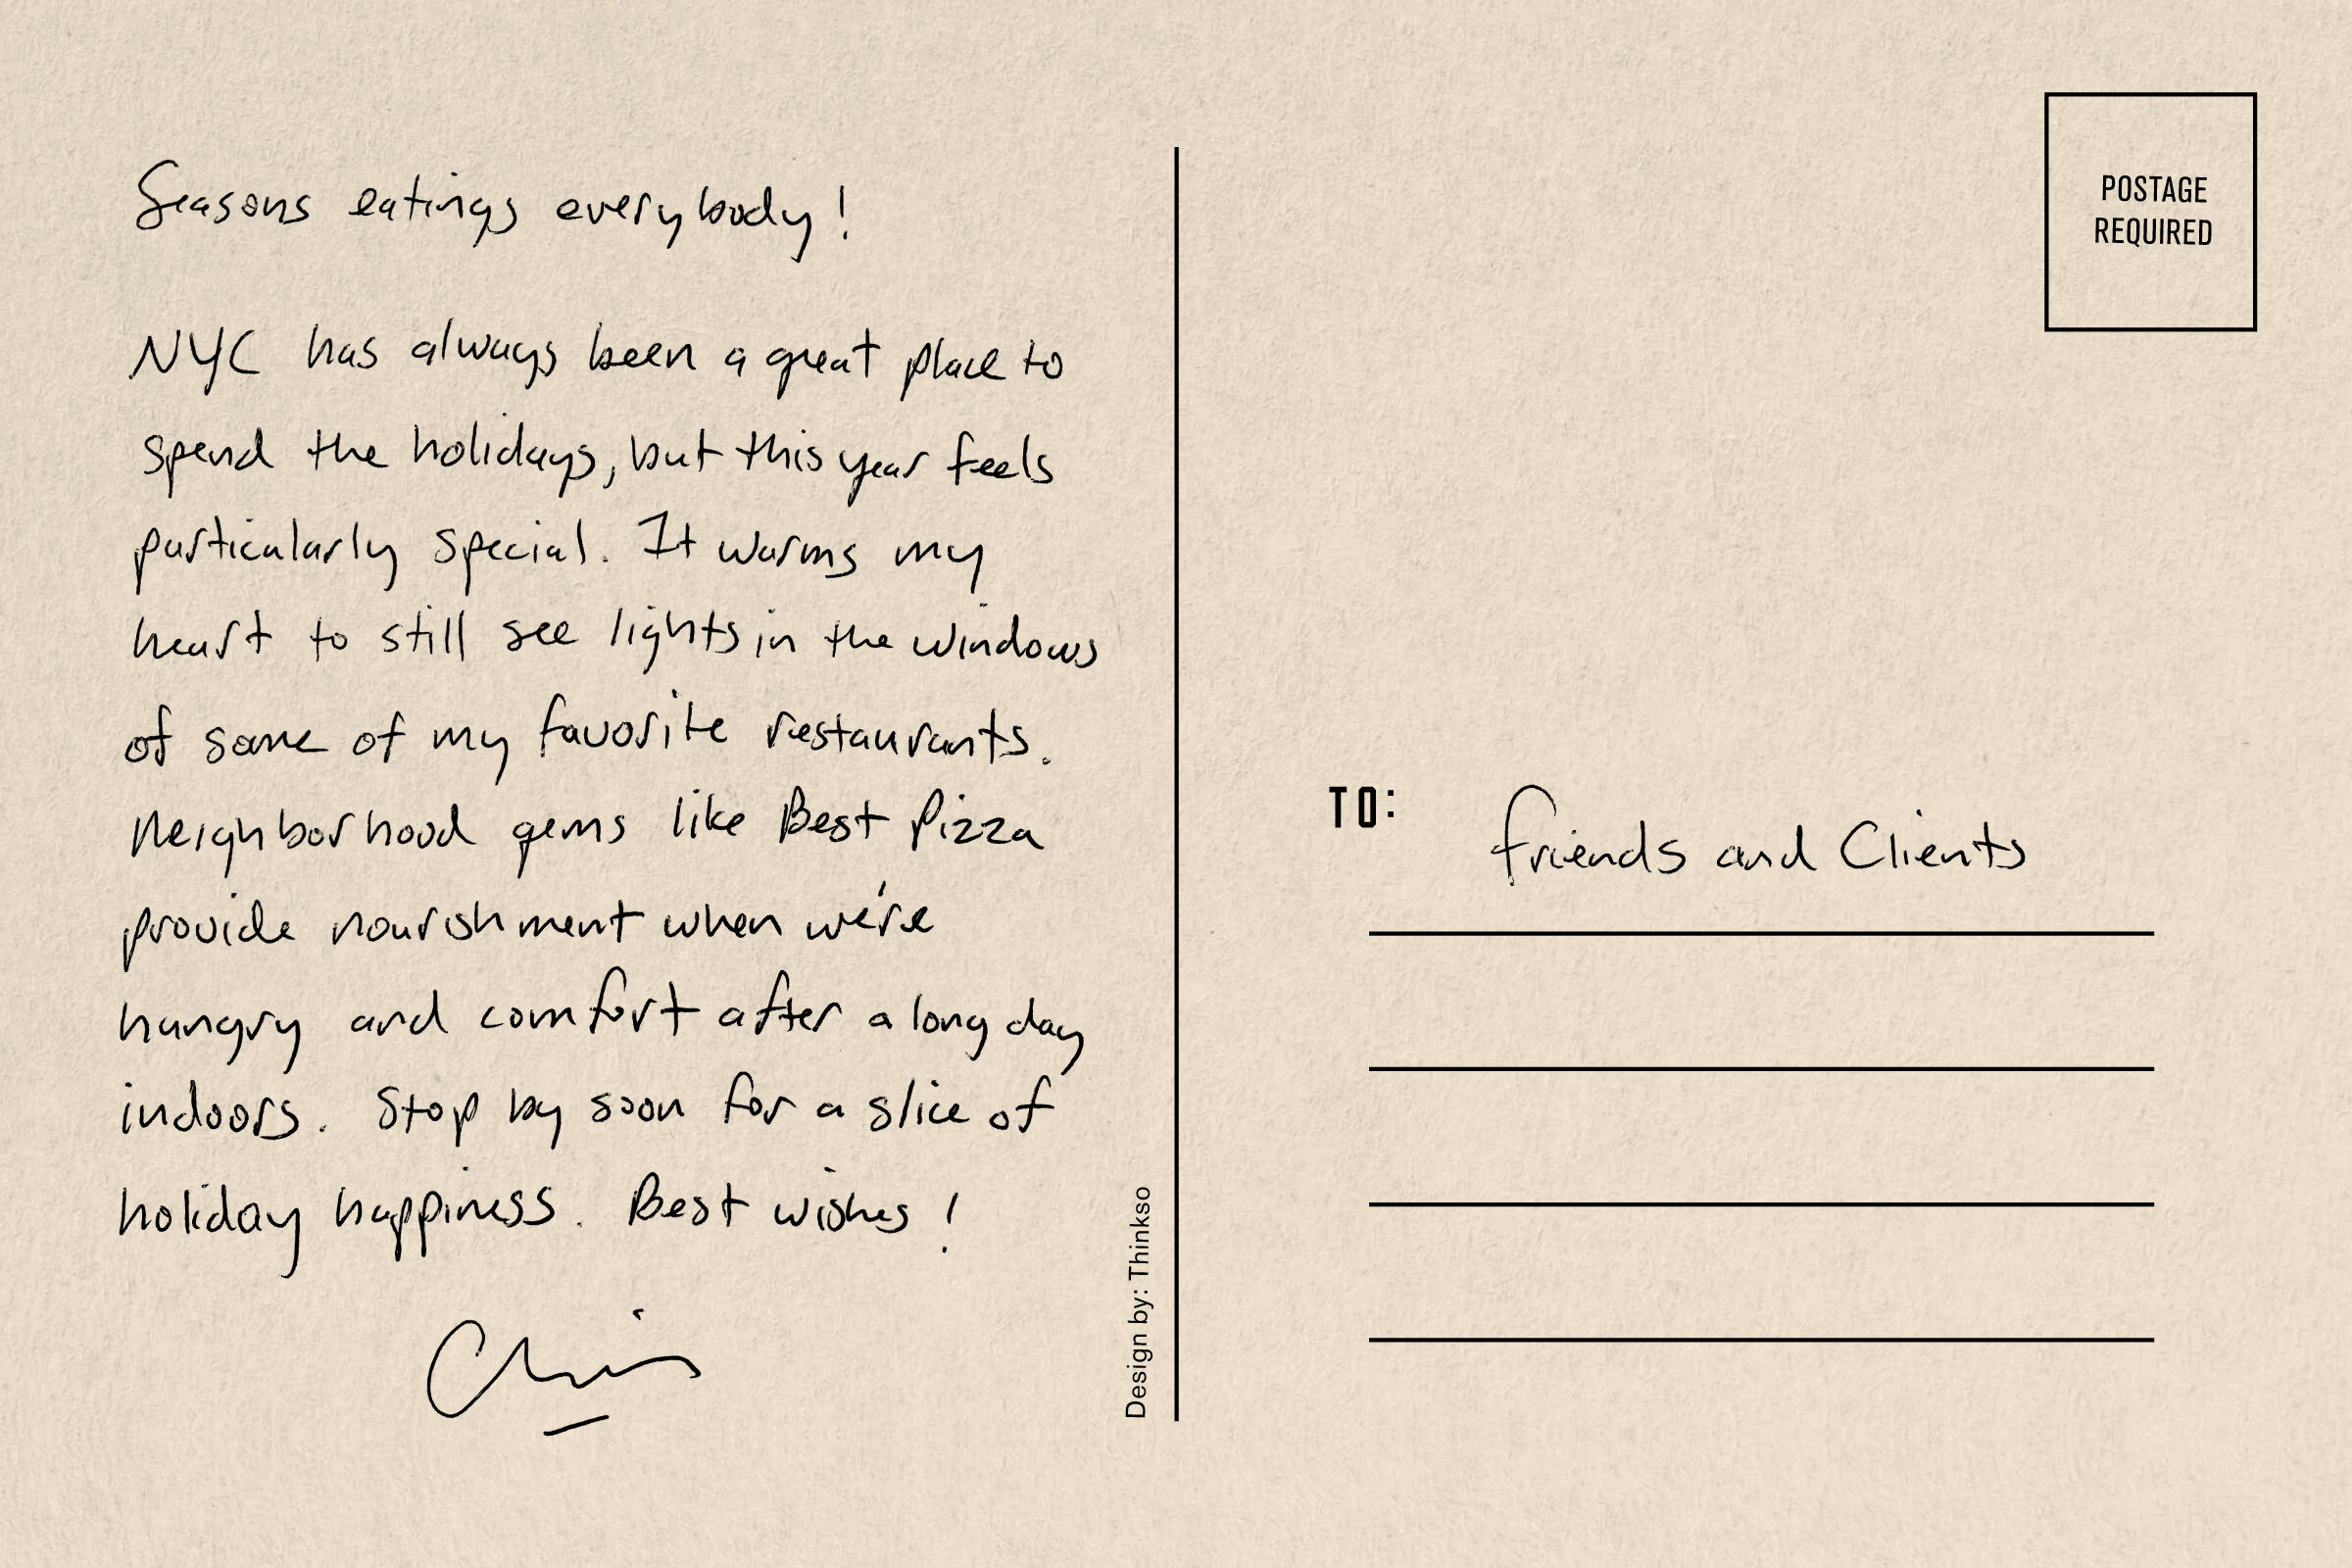 Seasons eatings everybody!
NYC has always been a great place to
spend the holidays, but this year feels
particularly special. It warms my
heart to still see lights in the windows
of some of my favorite restaurants.
Neighborhood gems like Best Pizza
provide nourishment when we're
hungry and comfort after a long day
indoors. Stop by soon for a slice of
holiday happiness. Best wishes!
Chris
Design by: Thinkso
POSTAGE
REQUIRED
TO: friends and Clients